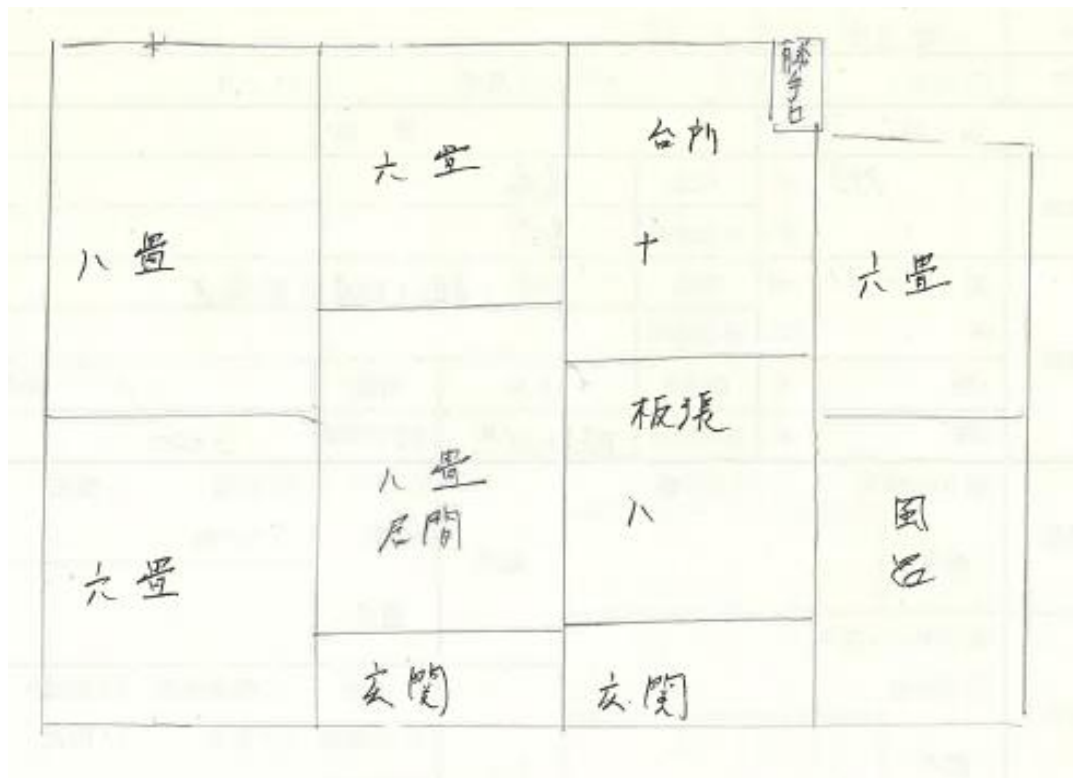 八畳
六畳
六畳
八畳
居間
玄関
台所
十
板張
八
玄関
勝手口
六畳
風呂